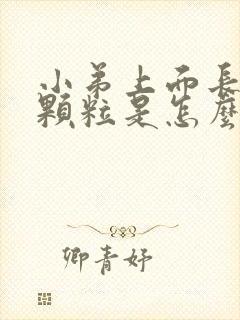 小弟上面長
顆粒是怎麼
卿青妤